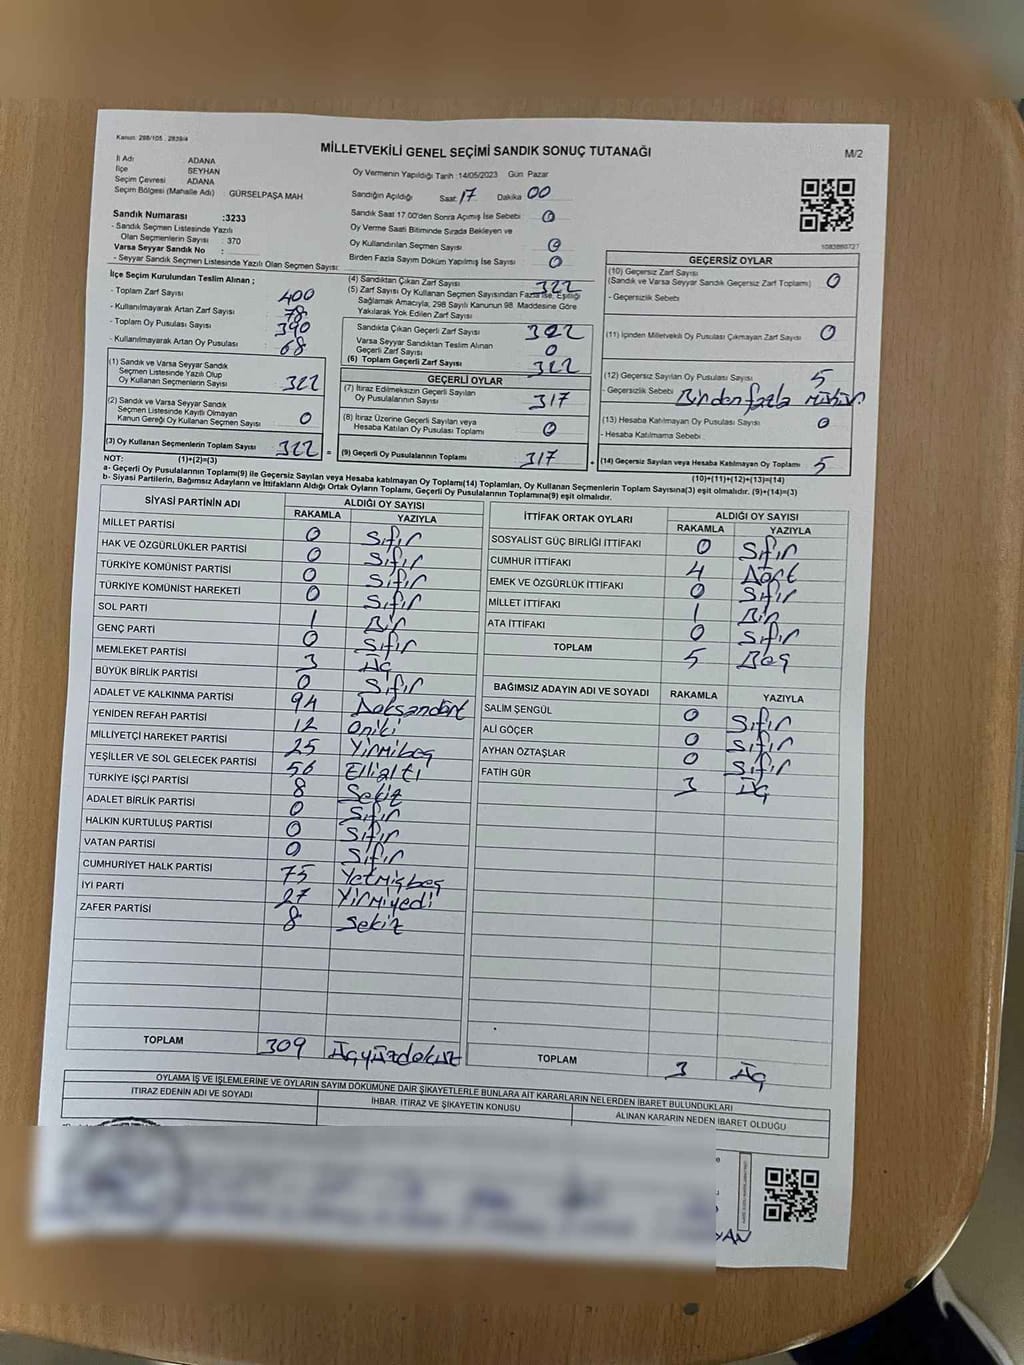 Kanun: 298/105 , 2839/4
MİLLETVEKİLİ GENEL SEÇİMİ SANDIK SONUÇ TUTANAĞI
M/2
İl Adı : ADANA
İlçe : SEYHAN
Seçim Çevresi : ADANA
Seçim Bölgesi (Mahalle Adı) : GÜRSELPAŞA MAH
Oy Vermenin Yapıldığı Tarih :14/05/2023 Gün Pazar
Sandığın Açıldığı Saat: 17 Dakika 00
Sandık Numarası :3233
- Sandık Seçmen Listesinde Yazılı
Olan Seçmenlerin Sayısı : 370
Varsa Seyyar Sandık No :
- Seyyar Sandık Seçmen Listesinde Yazılı Olan Seçmen Sayısı:
Sandık Saat 17.00'den Sonra Açımış İse Sebebi : 0
Oy Verme Saati Bitiminde Sırada Bekleyen ve
Oy Kullandırılan Seçmen Sayısı : 0
Birden Fazla Sayım Döküm Yapılmış İse Sayısı : 0
1083860727
İlçe Seçim Kurulundan Teslim Alınan ;
- Toplam Zarf Sayısı : 400
- Kullanılmayarak Artan Zarf Sayısı : 78
- Toplam Oy Pusulası Sayısı : 390
- Kullanılmayarak Artan Oy Pusulası : 68
(1) Sandık ve Varsa Seyyar Sandık
Seçmen Listesinde Yazılı Olup
Oy Kullanan Seçmenlerin Sayısı : 322
(2) Sandık ve Varsa Seyyar Sandık
Seçmen Listesinde Kayıtlı Olmayan
Kanun Gereği Oy Kullanan Seçmen Sayısı : 0
(3) Oy Kullanan Seçmenlerin Toplam Sayısı : 322 =
(4) Sandıktan Çıkan Zarf Sayısı : 322
(5) Zarf Sayısı Oy Kullanan Seçmen Sayısından Fazla İse, Eşitliği
Sağlamak Amacıyla, 298 Sayılı Kanunun 98. Maddesine Göre
Yakılarak Yok Edilen Zarf Sayısı :
Sandıkta Çıkan Geçerli Zarf Sayısı : 322
Varsa Seyyar Sandıktan Teslim Alınan
Geçerli Zarf Sayısı : 0
(6) Toplam Geçerli Zarf Sayısı : 322
GEÇERLİ OYLAR
(7) İtiraz Edilmeksizin Geçerli Sayılan
Oy Pusulalarının Sayısı : 317
(8) İtiraz Üzerine Geçerli Sayılan veya
Hesaba Katılan Oy Pusulası Toplamı : 0
(9) Geçerli Oy Pusulalarının Toplamı : 317 +
GEÇERSİZ OYLAR
(10) Geçersiz Zarf Sayısı
(Sandık ve Varsa Seyyar Sandık Geçersiz Zarf Toplamı) : 0
- Geçersizlik Sebebi :
(11) İçinden Milletvekili Oy Pusulası Çıkmayan Zarf Sayısı : 0
(12) Geçersiz Sayılan Oy Pusulası Sayısı : 5
- Geçersizlik Sebebi : Birden fazla mühür
(13) Hesaba Katılmayan Oy Pusulası Sayısı : 0
- Hesaba Katılmama Sebebi :
(14) Geçersiz Sayılan veya Hesaba Katılmayan Oy Toplamı : 5
NOT: (1)+(2)=(3)
(10)+(11)+(12)+(13)=(14)
a- Geçerli Oy Pusulalarının Toplamı(9) ile Geçersiz Sayılan veya Hesaba katılmayan Oy Toplamı(14) Toplamları, Oy Kullanan Seçmenlerin Toplam Sayısına(3) eşit olmalıdır. (9)+(14)=(3)
b- Siyasi Partilerin, Bağımsız Adayların ve İttifakların Aldığı Ortak Oyların Toplamı, Geçerli Oy Pusulalarının Toplamına(9) eşit olmalıdır.
SİYASİ PARTİNİN ADI ALDIĞI OY SAYISI
RAKAMLA YAZIYLA
MİLLET PARTİSİ 0 Sıfır
HAK VE ÖZGÜRLÜKLER PARTİSİ 0 Sıfır
TÜRKİYE KOMÜNİST PARTİSİ 0 Sıfır
TÜRKİYE KOMÜNİST HAREKETİ 0 Sıfır
SOL PARTİ 1 Bir
GENÇ PARTİ 0 Sıfır
MEMLEKET PARTİSİ 3 Üç
BÜYÜK BİRLİK PARTİSİ 0 Sıfır
ADALET VE KALKINMA PARTİSİ 94 Doksandört
YENİDEN REFAH PARTİSİ 12 Oniki
MİLLİYETÇİ HAREKET PARTİSİ 25 Yirmibeş
YEŞİLLER VE SOL GELECEK PARTİSİ 56 Ellialtı
TÜRKİYE İŞÇİ PARTİSİ 8 Sekiz
ADALET BİRLİK PARTİSİ 0 Sıfır
HALKIN KURTULUŞ PARTİSİ 0 Sıfır
VATAN PARTİSİ 0 Sıfır
CUMHURİYET HALK PARTİSİ 75 Yetmişbeş
İYİ PARTİ 27 Yirmiyedi
ZAFER PARTİSİ 8 Sekiz
TOPLAM 309 Üçyüzdokuz
İTTİFAK ORTAK OYLARI ALDIĞI OY SAYISI
RAKAMLA YAZIYLA
SOSYALİST GÜÇ BİRLİĞİ İTTİFAKI 0 Sıfır
CUMHUR İTTİFAKI 4 Dört
EMEK VE ÖZGÜRLÜK İTTİFAKI 0 Sıfır
MİLLET İTTİFAKI 1 Bir
ATA İTTİFAKI 0 Sıfır
TOPLAM 5 Beş
BAĞIMSIZ ADAYIN ADI VE SOYADI RAKAMLA YAZIYLA
SALİM ŞENGÜL 0 Sıfır
ALİ GÖÇER 0 Sıfır
AYHAN ÖZTAŞLAR 0 Sıfır
FATİH GÜR 3 Üç
TOPLAM 3 Üç
OYLAMA İŞ VE İŞLEMLERİNE VE OYLARIN SAYIM DÖKÜMÜNE DAİR ŞİKAYETLERLE BUNLARA AİT KARARLARIN NELERDEN İBARET BULUNDUKLARI
İTİRAZ EDENİN ADI VE SOYADI İHBAR, İTİRAZ VE ŞİKAYETİN KONUSU ALINAN KARARIN NEDEN İBARET OLDUĞU